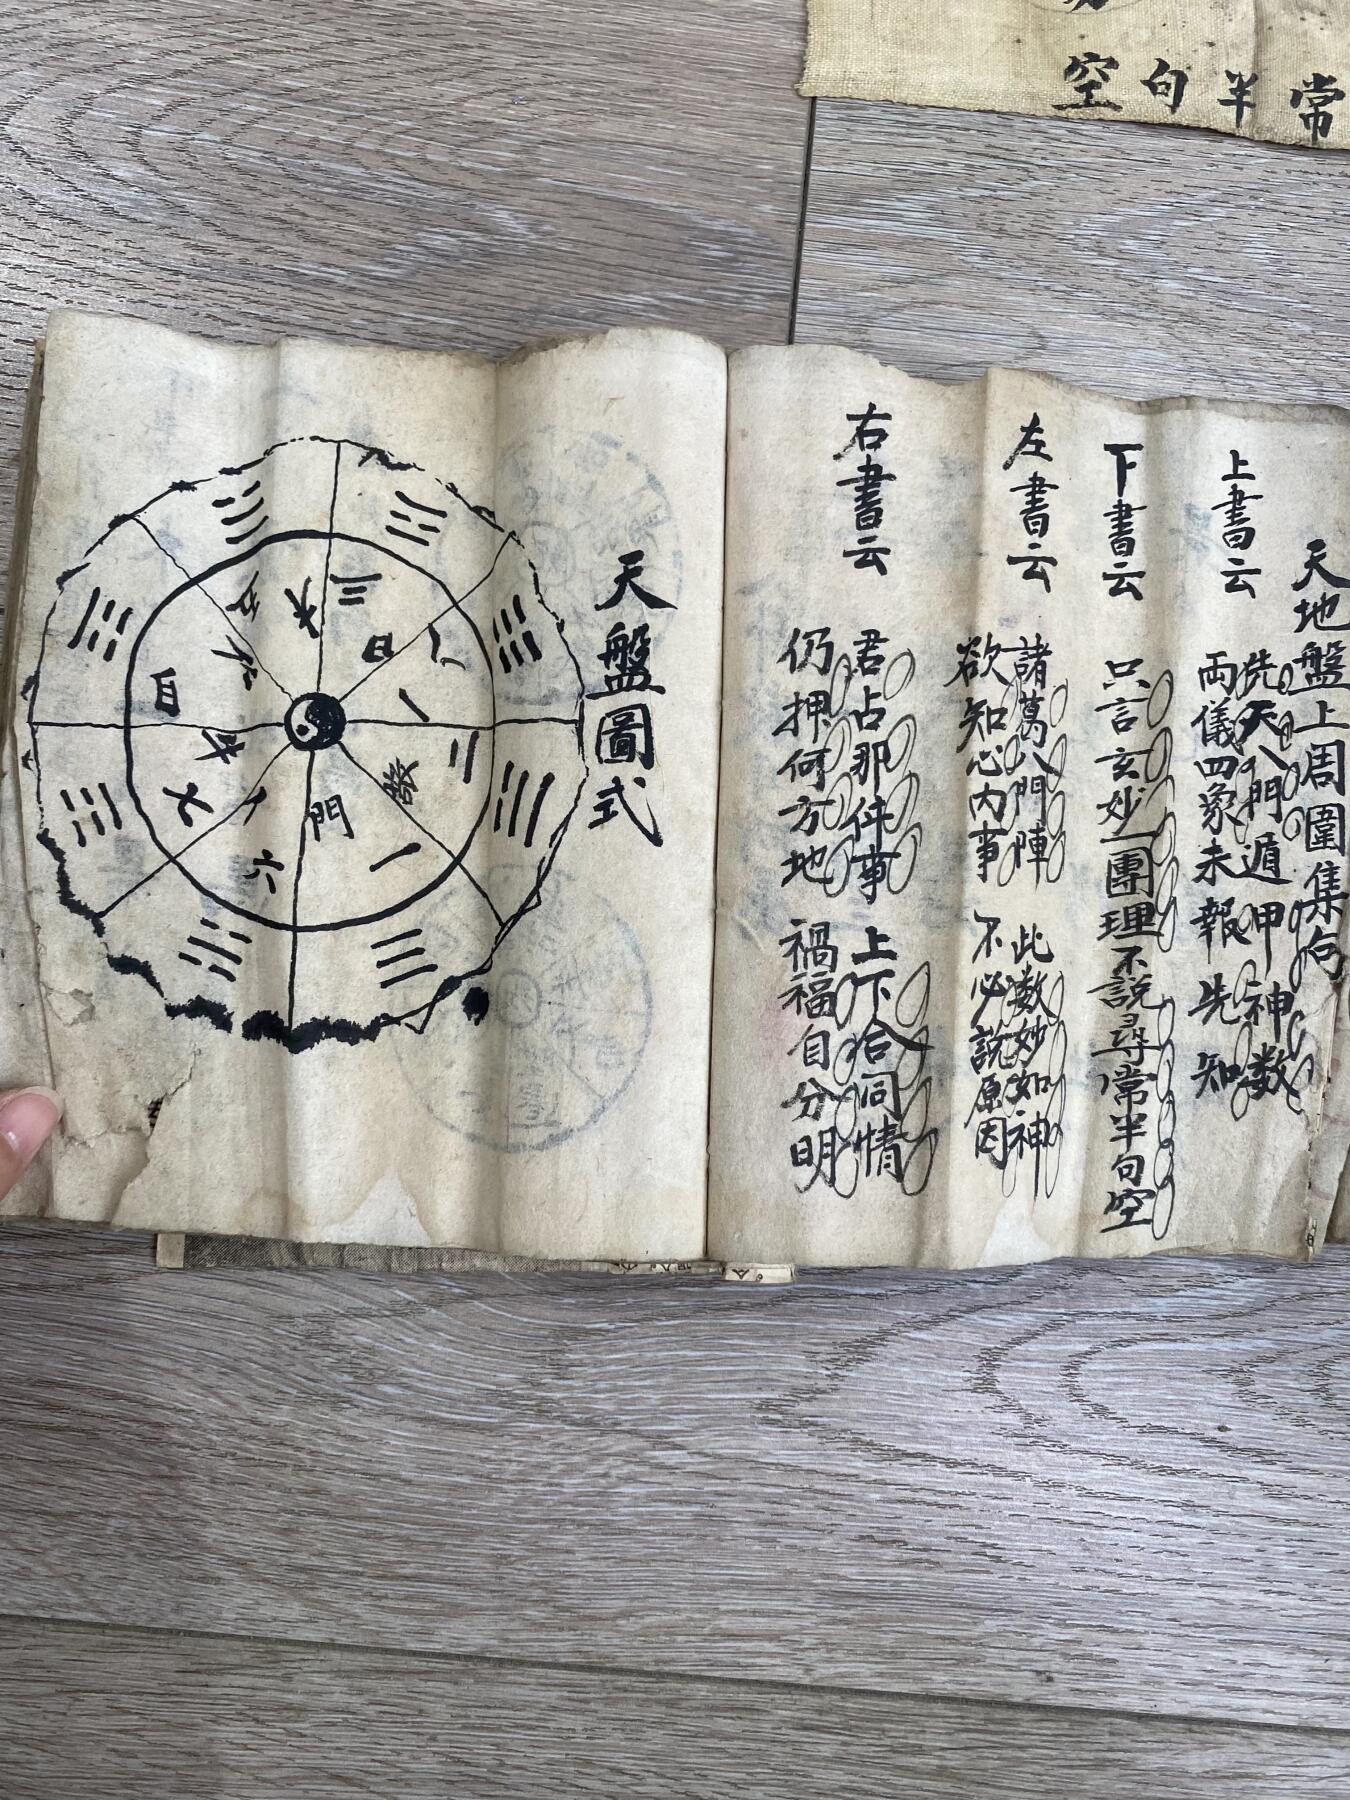 空句半常
天地盤上周圍集句
上書云
先天八門遁甲神数
両儀四象未報先知
下書云
只言玄妙一團理不説尋常半句空
左書云
諸葛八門陣 此数妙如神
欲知心内事 不必説原因
右書云
君占那件事 上下合同情
仍押何方地 禍福自分明
天盤圖式
三
日
八
一
二
發
門
一
六
七
自